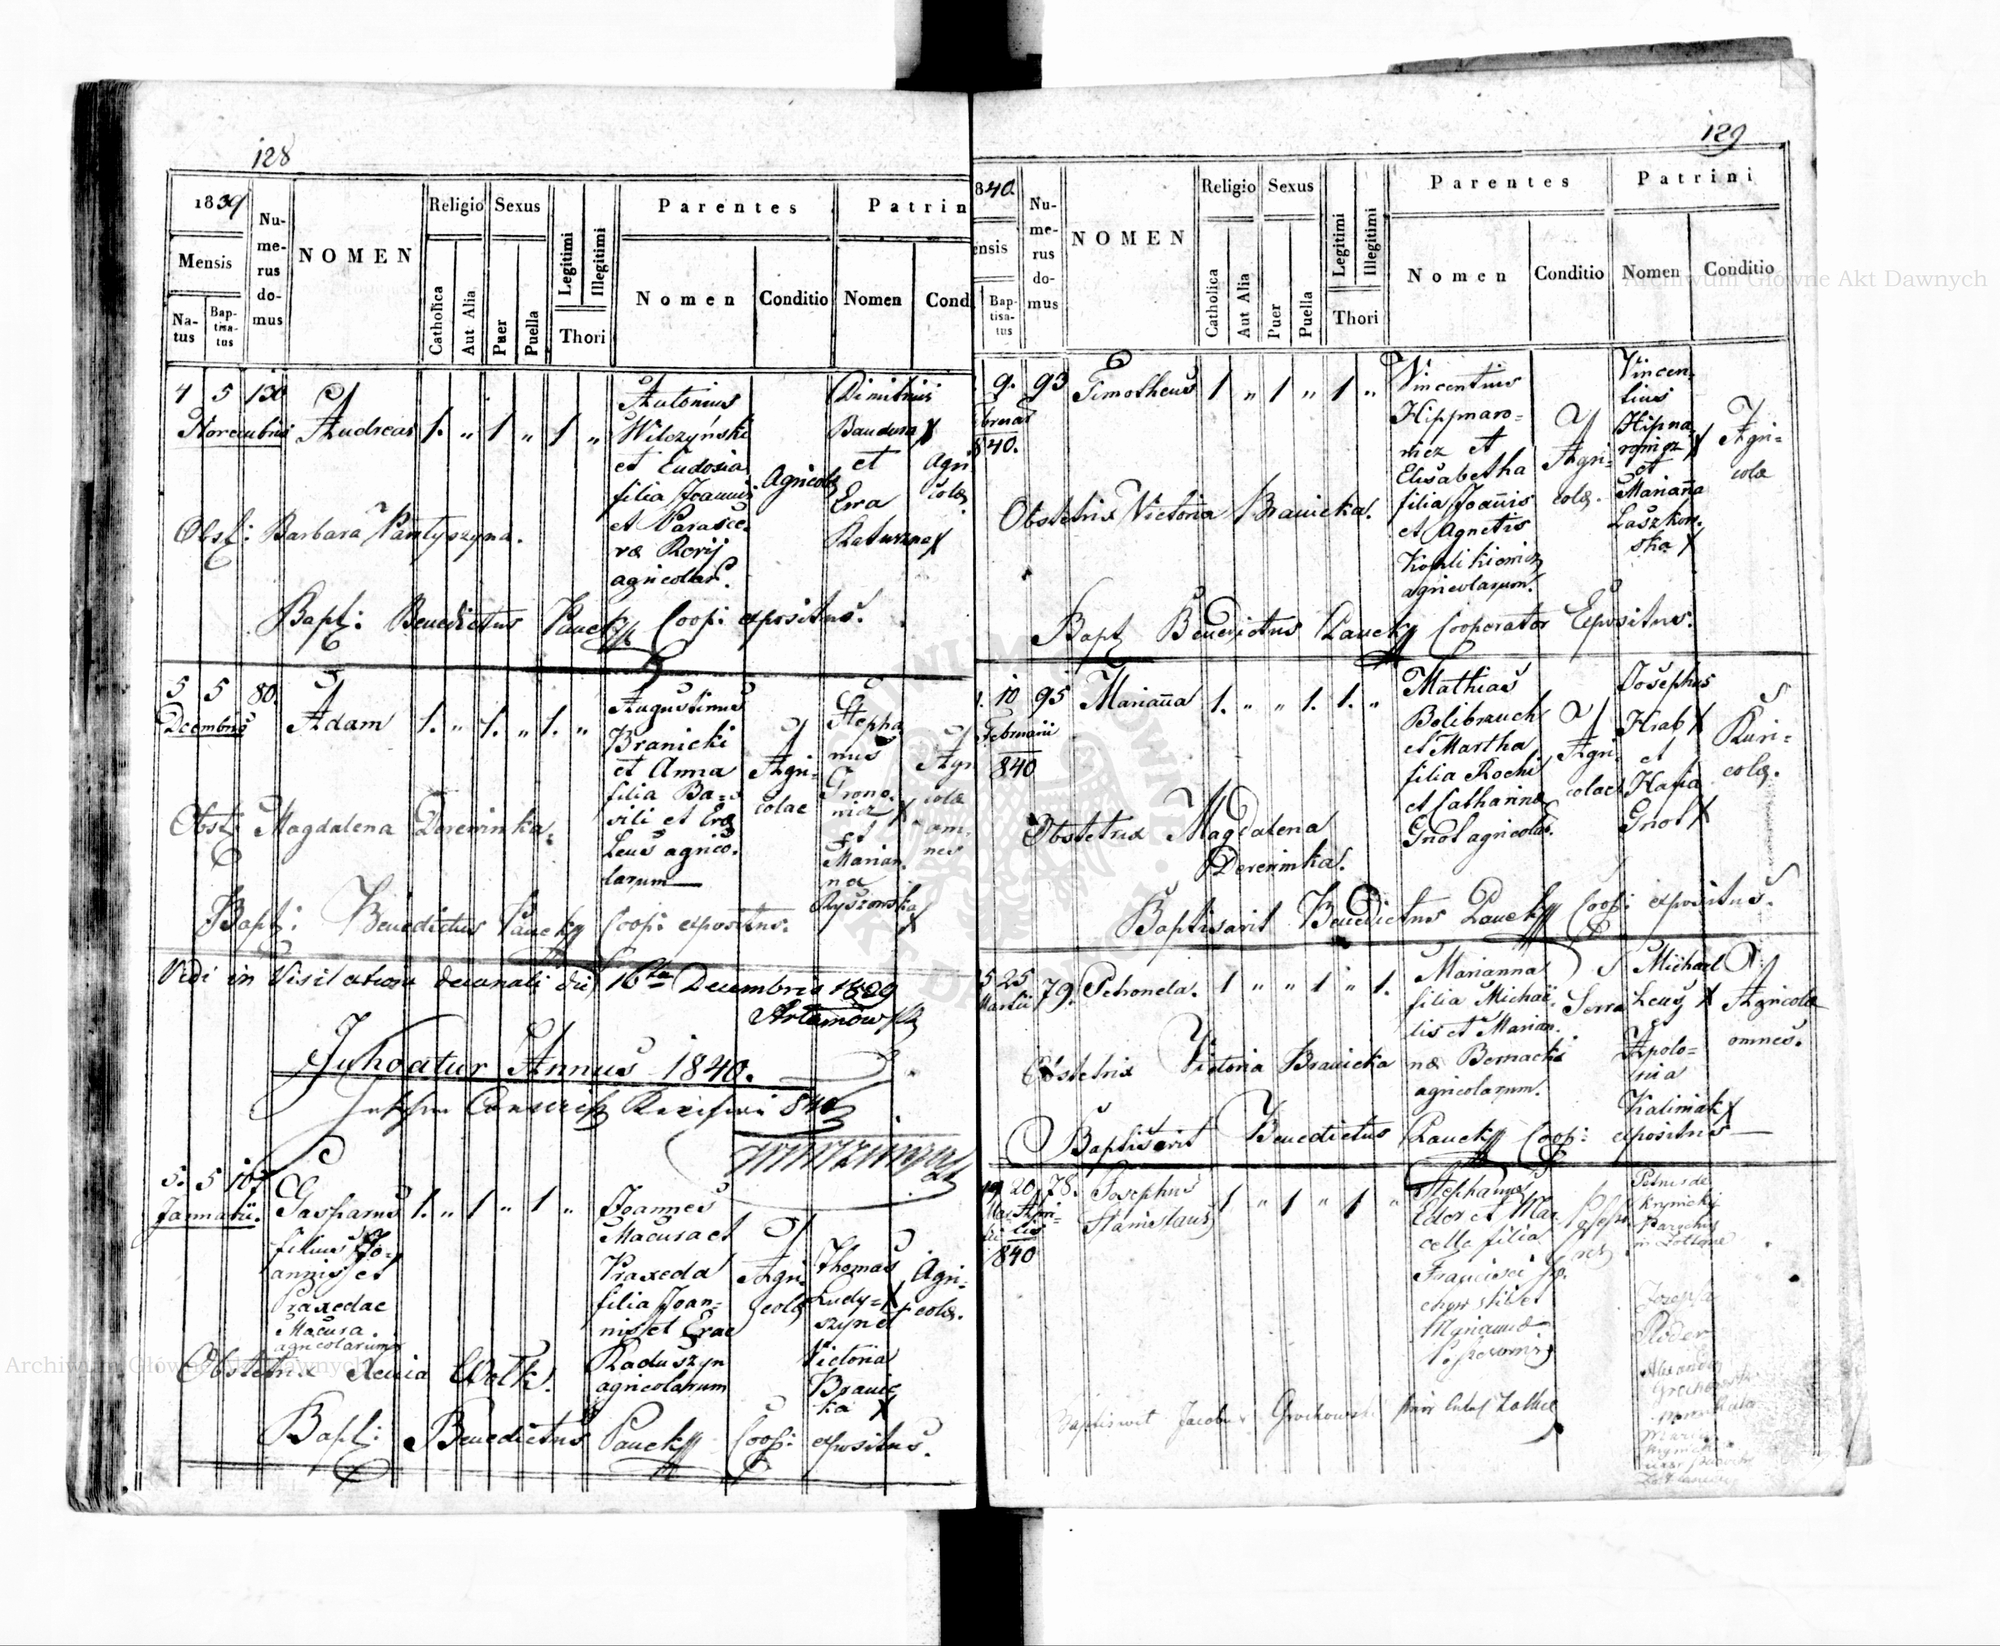 128
1839
Mensis
Na-
tus
Bap-
tisa-
tus
Nu-
me-
rus
do-
mus
NOMEN
Religio
Catholica
Aut Alia
Sexus
Puer
Puella
Legitimi
Illegitimi
Thori
Parentes
Nomen
Conditio
Patrin
Nomen
Cond
4 5 130
Novembris
Andreas 1. " 1 " 1 "
Antonius
Wilczyński
et Eudosia
filia Joannis
et Parasce-
væ
agricolar.
Agricolæ
Dimitrius
Bandura X
et
Eva
Ratuszna X
Agri
colæ
Obst: Barbara Pantyszyna.
Bapt: Benedictus Coop: expositus.
5 5 80.
Decembris
Adam 1. " 1. " 1. "
Augustinus
Branicki
et Anna
filia Ba-
sili et Evæ
Leus agrico-
larum
Agri-
colae
Stepha
nus
X
et
Marian-
na
Ryszowska
X
Agri
colæ
om-
nes
Obst: Magdalena Derewinka.
Bapt: Benedictus Coop: expositus.
Vidi in Visitatione decanali die 16ta Decembris 1839
Inhoatur Annus 1840.
5. 5
Januarii.
Gasparus 1. " 1 " 1 "
filius Jo-
annis et
Praxedae
Macura
agricolarum
Joannes
Macura et
Praxeda
filia Joan-
nis et Evae
Raduszyn
agricolarum
Agri-
colæ
Thomas
Ludy- X
szyn et
Victoria
Branic
ka X
Agri-
colæ.
Obstetrix Xenia Wolk.
Bapt: Benedictus Coop: expositus.
129
840.
ensis
Bap-
tisa-
tus
Nu-
me-
rus
do-
mus
NOMEN
Religio
Catholica
Aut Alia
Sexus
Puer
Puella
Legitimi
Illegitimi
Thori
Parentes
Nomen
Conditio
Patrini
Nomen
Conditio
9. 93
840.
Timotheus 1 " 1 " 1 "
Vincentius
Hippnaro-
wicz et
Elisabetha
filia Joañis
et Agnetis
agricolarum.
Agri-
colæ.
Vincen-
tius
Hipna-
rowicz X
et
Mariaña
Laszkow-
ska X
Agri-
colæ
Obstetrix Victoria Branicka.
Bapt Benedictus Cooperator Expositus.
10 95
Februarii
840
Mariaña 1. " " 1. 1. "
Mathias
Bolibrzuch
et Martha
filia Rochi
et Catharinæ
Gnot agricolar.
Agri-
colae
Josephus
Hrab X
et
Hafia
Gnot X
Ruri-
colæ.
Obstetrix Magdalena
Derewinka.
Baptisavit Benedictus Coop: expositus.
25 79.
Martii
Petronela. 1 " " 1 " 1.
Marianna
filia Michaë-
lis et Marian-
næ Bernacki
agricolarum.
Serva
Michael
Leus X
et
Apolo-
nia
Kaliniak X
Agricolæ
omnes.
Obstetrix Victoria Branicka
Baptisavit Benedictus Coop: expositus
20 78.
840
Josephus
Stanislaus 1 " 1 " 1 "
Stephanus
Eder et Mar-
cella filia
Francisci
Petrus de
Krynicki
Parochus
Josepha
Röder
Alexander
Baptisavit Jacobus Grochowski
Archiwum Główne Akt Dawnych
Archiwum Główne Akt Dawnych